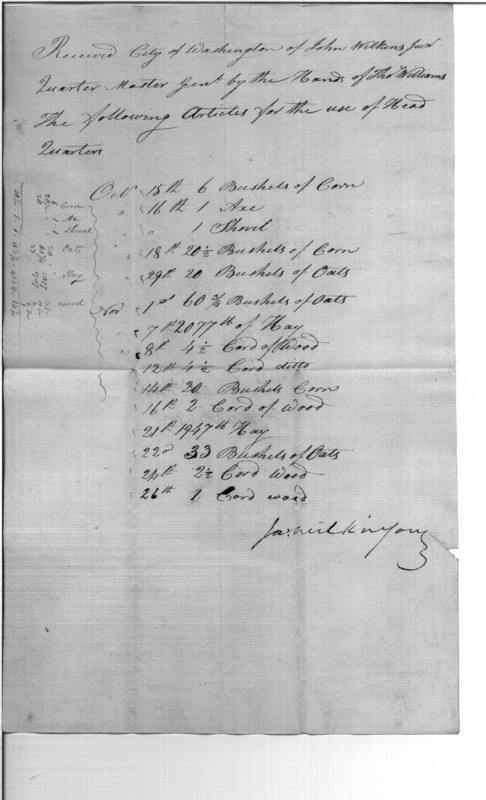 Received City of Washington of John Wilkins Junr
Quarter Master Genl by the Hands of Tho Williams
The following Articles for the use of Head
Quarters
Octr 15th 6 Bushels of Corn
" 16th 1 Axe
" " 1 Shovel
" 18th 20½ Bushels of Corn
" 29th 20 Bushels of Oats
Nov 1st 60¾ Bushels of Oats
" 7th 2077 lb of Hay
" 8th 4½ Cord of Wood
" 12th 4½ Cord ditto
" 14th 20 Bushels Corn
" 16th 2 Cord of Wood
" 21st 1947 lb Hay
" 22nd 33 Bushels of Oats
" 24th 2½ Cord Wood
" 26th 1 Cord wood
Ja Wilkinson
Corn
Ax
Shovel
Oats
Hay
Wood